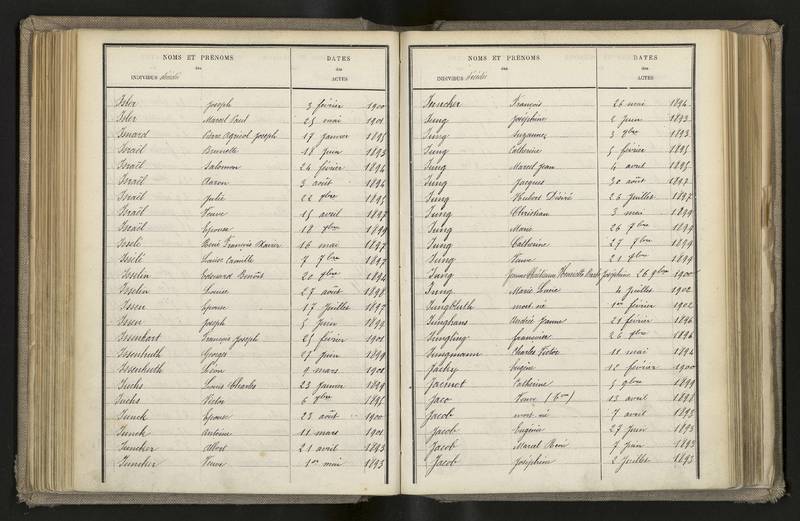 NOMS ET PRÉNOMS
des
INDIVIDUS décédés
DATES
des
ACTES
Isler Joseph 3 février 1900
Isler Marcel Paul 25 mai 1901
Isnard Agricol Joseph 17 janvier 1895
Israël Brunette 18 juin 1893
Israël Salomon 24 février 1894
Israël Aaron 3 août 1894
Israël Julie 22 1895
Israël Veuve 15 avril 1897
Israël Epouse 18 1899
Isseli René François Xavier 16 mai 1897
Isseli Louise Camille 7 1897
Isselin Edouard Benoît 20 1894
Isselin Louise 27 août 1898
Issen Epouse 17 juillet 1897
Issen Joseph 5 juin 1899
Issenhart François Joseph 25 février 1901
Issenhuth Georges 27 juin 1899
Issenhuth Léon 9 mars 1901
Juchs Louis Charles 23 janvier 1899
Juchs Victor 6 1895
Junck Epouse 23 août 1900
Junck Antoine 11 mars 1901
Juncker Albert 21 avril 1893
Juncker Veuve 1er mai 1893
NOMS ET PRÉNOMS
des
INDIVIDUS décédés
DATES
des
ACTES
Juncker François 26 mai 1894
Jung Joséphine 2 juin 1893
Jung Suzanne 3 1893
Jung Catherine 5 février 1895
Jung Marcel Jean 4 avril 1895
Jung Jacques 30 août 1897
Jung Hubert Désiré 26 juillet 1897
Jung Christian 3 mai 1899
Jung Marie 26 1899
Jung Catherine 27 1899
Jung Veuve 21 1899
Jung Joséphine 26 1900
Jung Marie Louise 4 juillet 1902
Jungbluth mort né 1er février 1902
Junghans Andrée Jeanne 21 février 1896
Jungling Françoise 26 1896
Jungmann Charles Victor 11 mai 1894
Jachy Eugène 12 février 1900
Jacinot Catherine 5 1899
Jaco Veuve 13 avril 1898
Jacob mort né 7 avril 1893
Jacob Eugénie 27 juin 1893
Jacob Marcel René 7 juin 1893
Jacob Joséphine 2 juillet 1893